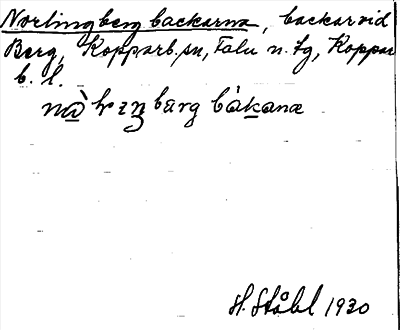 Norlingbergbackarna, backar vid
Berg, Kopparb. sn, Falu n. tg, Koppar
b. l.
bärg båkanæ
H. Ståhl 1930